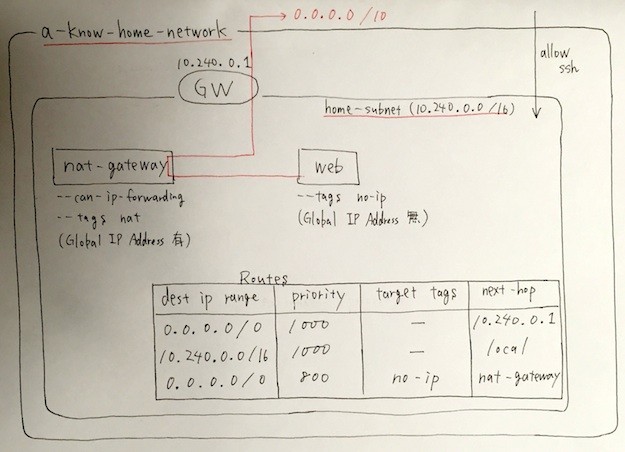 0.0.0.0/10
a-know-home-network
10.240.0.1
allow
ssh
GW
home-subnet (10.240.0.0/16)
nat-gateway
web
--can-ip-forwarding
--tags nat
(Global IP Address 有)
--tags no-ip
(Global IP Address 無)
Routes
dest ip range priority target tags next-hop
0.0.0.0/0 1000 — 10.240.0.1
10.240.0.0/16 1000 — local
0.0.0.0/0 800 no-ip nat-gateway